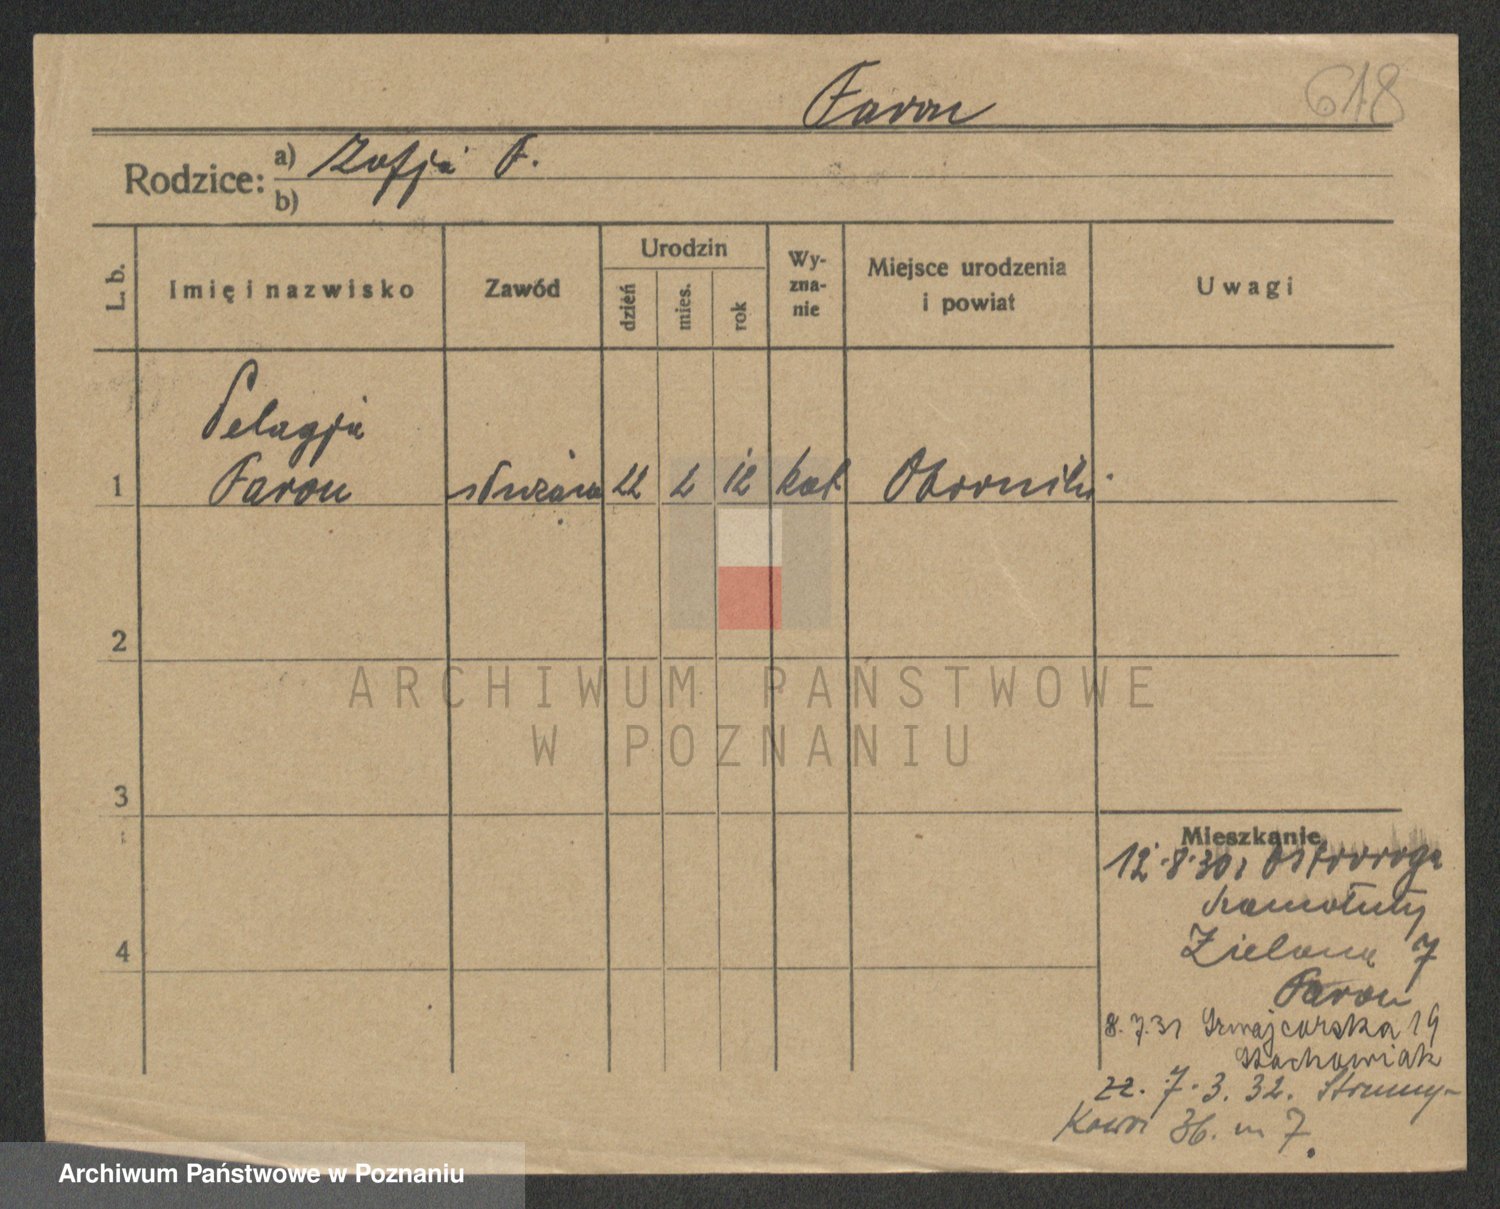 Faron
618
Rodzice: a) Zofja F.
b)
L. b.
Imię i nazwisko
Zawód
Urodzin
dzień
mies.
rok
Wy-
zna-
nie
Miejsce urodzenia
i powiat
Uwagi
Pelagja
1 Faron służąca 22 2 12 kat. Oborniki
2
3
4
Mieszkanie
12.8.30 Ostroroga
Szamotuły
Zielona 7
Faron
8.7.31 Szwajcarska 19
Stachowiak
22. 7. 3. 32. Strumy-
kowa 36. m 7.
ARCHIWUM PAŃSTWOWE
W POZNANIU
Archiwum Państwowe w Poznaniu